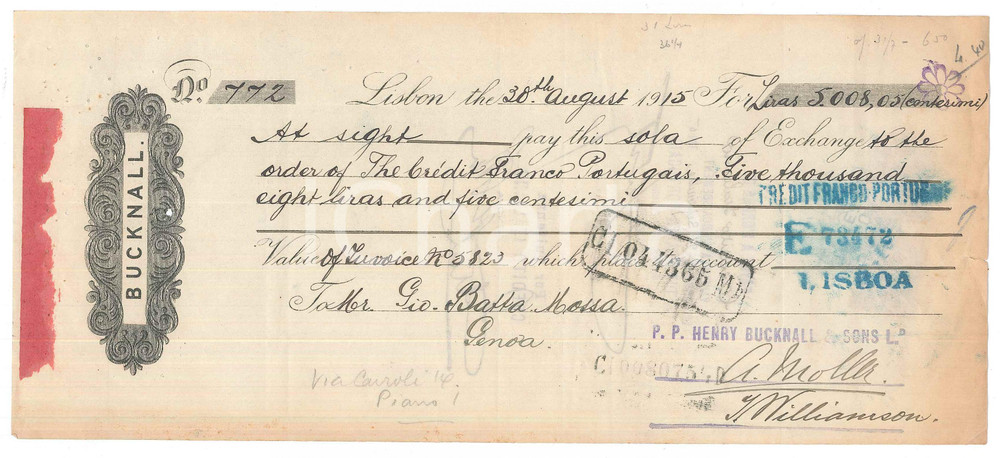 No. 772
Lisbon the 30th August 1915 For Liras 5.008,05 (centesimi)
At sight pay this sola of Exchange to the
order of The Crédit Franco Portugais, Five thousand
eight liras and five centesimi
CREDIT FRANCO-PORTUGAIS
E 73472
LISBOA
Value of Invoice No 5823 which place to account
C1 044365 M
To Mr. Gio. Batta Mossa.
Genoa.
P. P. HENRY BUCKNALL & SONS Ld
A. Moller.
Williamson.
Via Cairoli 14
Piano 1
BUCKNALL.